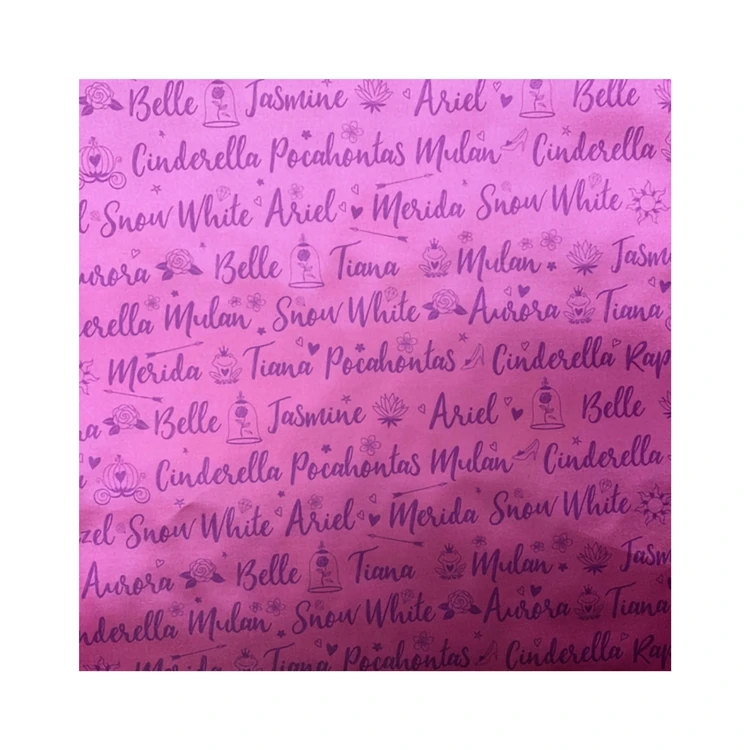 Belle Jasmine Ariel Belle
Cinderella Pocahontas Mulan Cinderella
Snow White Ariel Merida Snow White
Belle Tiana Mulan Jasm
erella Mulan Snow White Aurora Tiana
Merida Tiana Pocahontas Cinderella Rap
Belle Jasmine Ariel Belle
Cinderella Pocahontas Mulan Cinderella
zel Snow White Ariel Merida Snow White
Aurora Belle Tiana Mulan Jasm
nderella Mulan Snow White Aurora Tiana
Merida Tiana Pocahontas Cinderella Rap